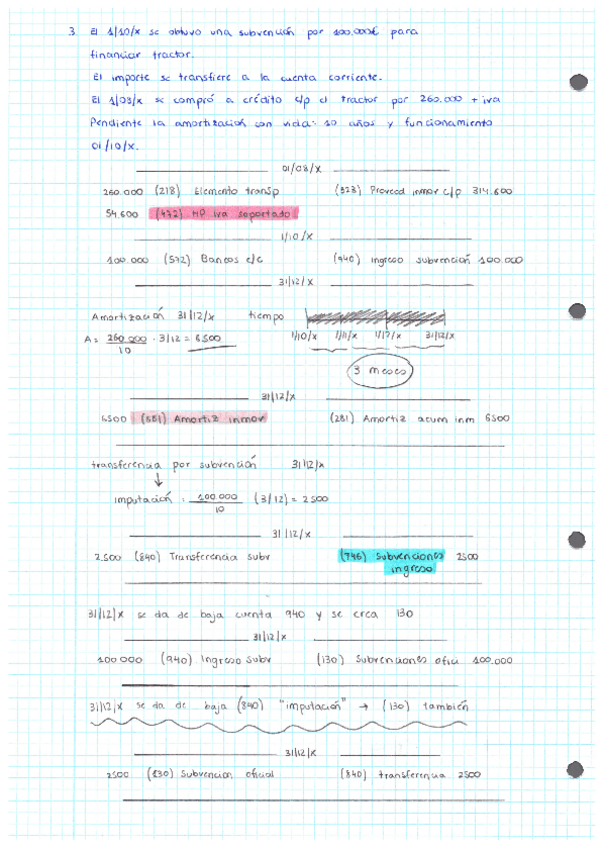 3. El 1/10/x se obtuvo una subvención por 100.000€ para
financiar tractor.
El importe se transfiere a la cuenta corriente.
El 1/08/x se compró a crédito c/p el tractor por 260.000 + iva
Pendiente la amortización con vida: 10 años y funcionamiento
01/10/x.
01/08/x
260.000 (218) Elemento transp (523) Proveed inmov c/p 314.600
54.600 (472) HP iva soportado
1/10/x
100.000 (572) Bancos c/c (940) Ingreso subvención 100.000
31/12/x
Amortización 31/12/x tiempo
A = 260.000 / 10 · 3/12 = 6500
1/10/x 1/11/x 1/12/x 31/12/x
3 meses
31/12/x
6500 (681) Amortiz inmov (281) Amortiz acum inm 6500
transferencia por subvención 31/12/x
↓
imputación = 100.000 / 10 (3/12) = 2500
31/12/x
2.500 (840) Transferencia subv (746) Subvenciones 2500
ingreso
31/12/x se da de baja cuenta 940 y se crea 130
31/12/x
100.000 (940) Ingreso Subv (130) Subvenciones ofici 100.000
31/12/x se da de baja (840) "imputación" → (130) también
31/12/x
2500 (130) Subvencion oficial (840) transferencia 2500